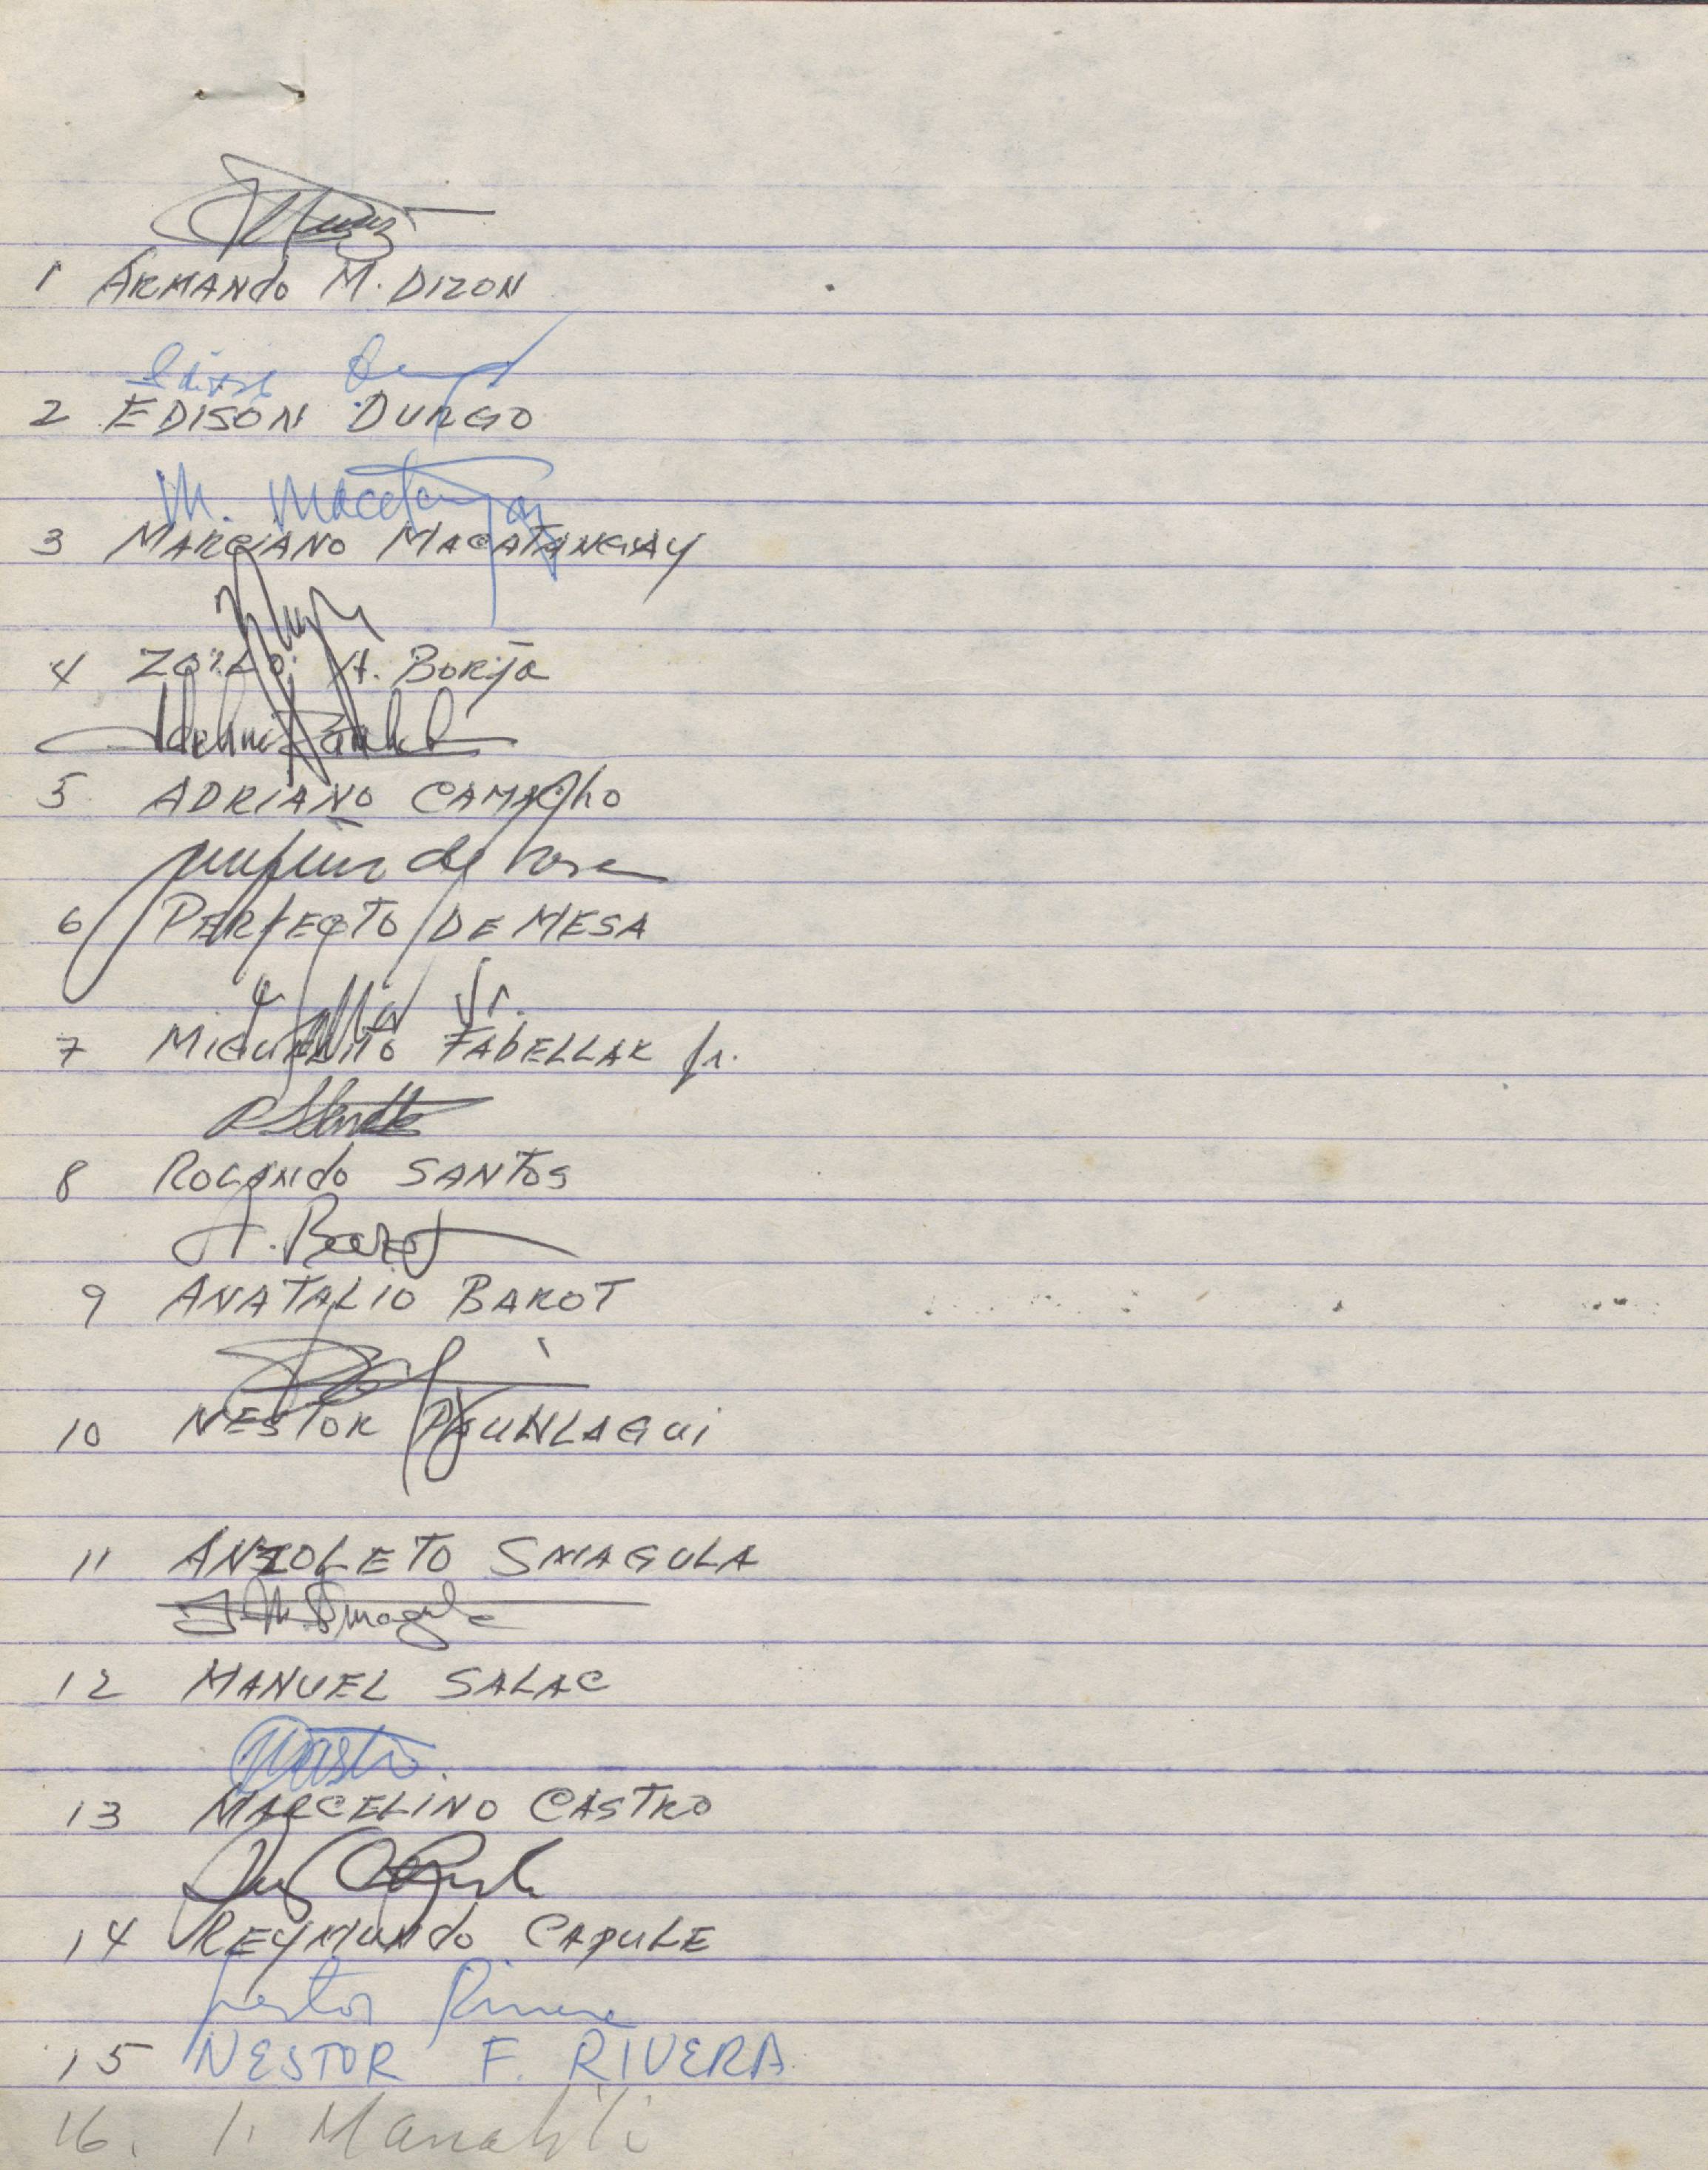 1 ARMANDO M. DIZON
2 EDISON DUNGO
M. Macatangay
3 MARCIANO MACATANGAY
4 A. BORJA
5 ADRIANO CAMACHO
6 PERFECTO DE MESA
Jr.
7 MIGUELITO FABELLAR Jr.
8 ROLANDO SANTOS
A. Barot
9 ANATALIO BAROT
10 NESTOR
11 ANZOLETO SMAGULA
12 MANUEL SALAC
13 MARCELINO CASTRO
14 REYMUNDO CAPULE
Nestor Rivera
15 NESTOR F. RIVERA
16. I. Manabili